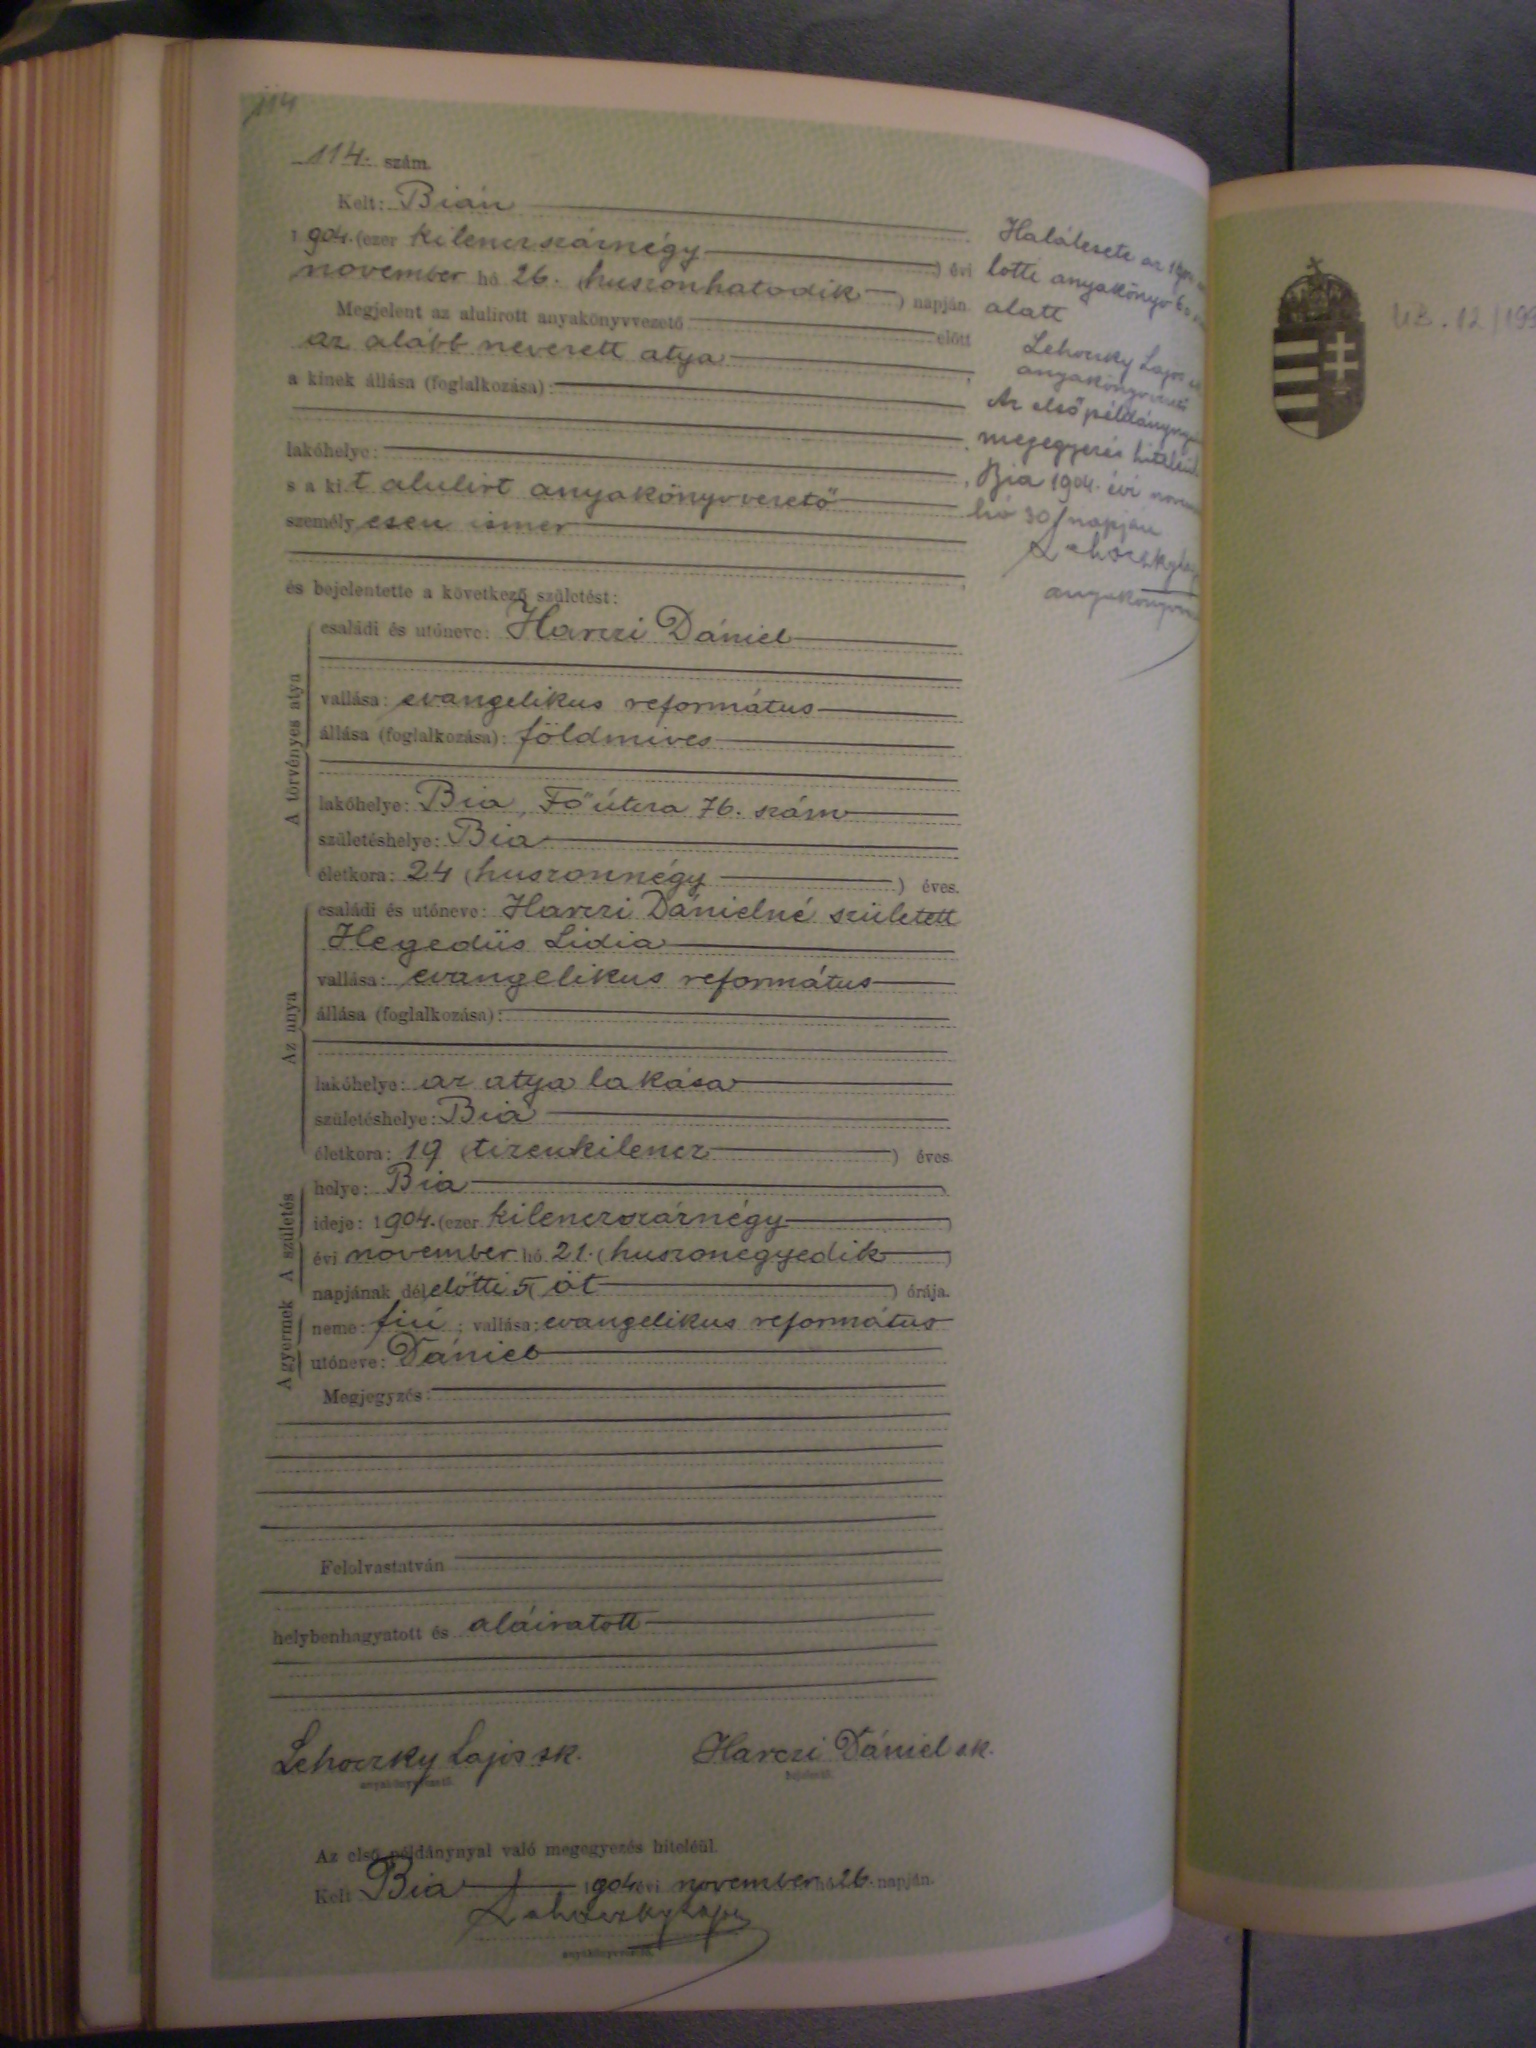 114
114. szám.
Kelt: Bián
1904. (ezer kilenczszáznégy) évi
november hó 26. (huszonhatodik) napján.
Megjelent az alulirott anyakönyvvezető előtt
az alább nevezett atya
a kinek állása (foglalkozása):
lakóhelye:
s a kit alulirt anyakönyvvezető
személyesen ismer
és bejelentette a következő születést:
A törvényes atya
családi és utóneve: Harczi Dániel
vallása: evangelikus református
állása (foglalkozása): földmives
lakóhelye: Bia, Fő útcza 76. szám
születéshelye: Bia
életkora: 24 (huszonnégy) éves.
Az anya
családi és utóneve: Harczi Dánielné született
Hegedüs Lidia
vallása: evangelikus református
állása (foglalkozása):
lakóhelye: az atya lakása
születéshelye: Bia
életkora: 19 (tizenkilencz) éves.
A születés
helye: Bia
ideje: 1904. (ezer kilenczszáznégy)
évi november hó 21. (huszonegyedik)
napjának délelőtti 5 (öt) órája.
A gyermek
neme: fiú; vallása: evangelikus református
utóneve: Dániel
Megjegyzés:
Felolvastatván
helybenhagyatott és aláiratott
Lehoczky Lajos sk.
anyakönyvvezető.
Harczi Dániel s.k.
bejelentő.
Az első példánynyal való megegyezés hiteléül.
Kelt Bia 1904 évi november hó 26. napján.
Lehoczky Lajos
anyakönyvvezető.
Halálesete az
lotti anyakönyv
alatt
Lehoczky Lajos
anyakönyvvezető
Az első
megegyezés
Bia 1904. évi
hó 30 napján
Lehoczky
ÜB. 12/199